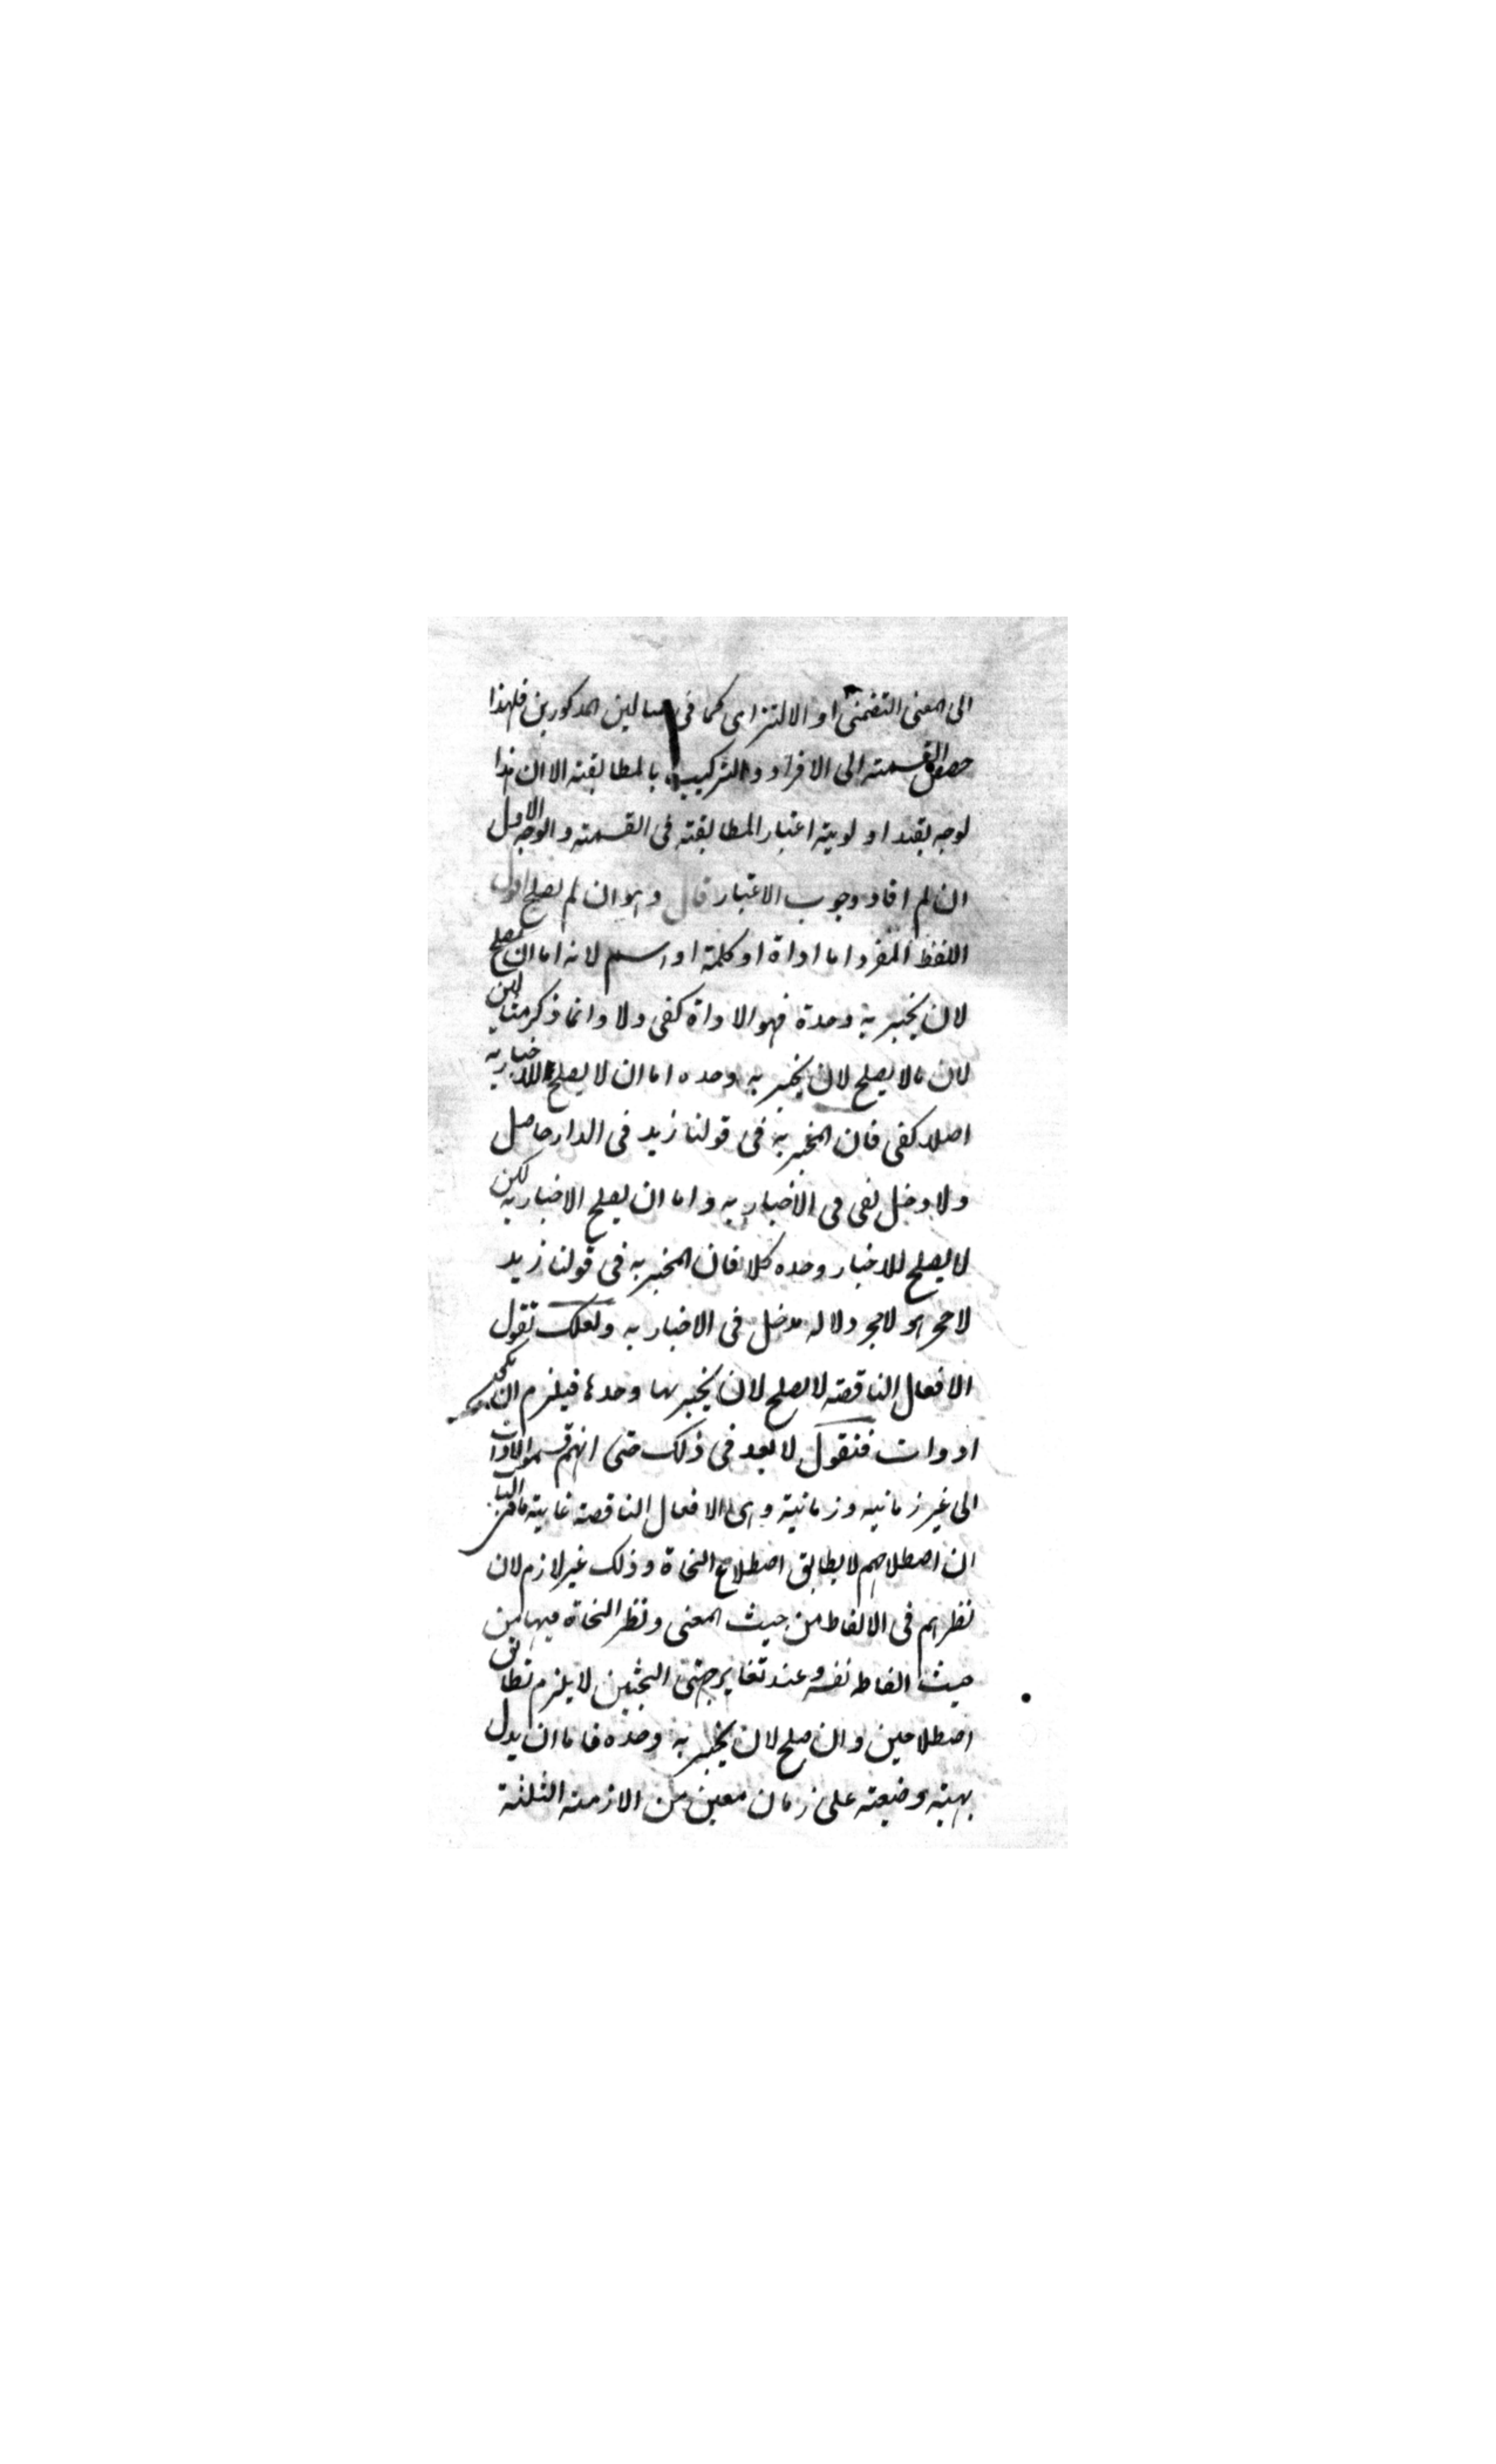 الى المعنى التضمنى او الالتزامى كما فى المثالين المذكورين فلهذا
خصص القسمة الى الافراد والتركيب بالمطابقة الا ان هذا
لوجه يفيد اولوية اعتبار المطابقة فى القسمة والوجه الاول
ان لم افاد وجوب الاعتبار قال وهو ان لم يصلح اقول
اللفظ المفرد اما اداة او كلمة او اسم لانه اما ان يصلح
لان يخبر به وحدة فهو الاداة كفى ولا وانما ذكر مثالين
لان ما لا يصلح لان يخبر به وحده اما ان لا يصلح للاخبار به
اصلا كفى فان المخبر به فى قولنا زيد فى الدار حاصل
ولا دخل لفى فى الاخبار به واما ان يصلح الاخبار به لكن
لا يصلح للاخبار وحده كلا فان المخبر به فى قولنا زيد
لا حجر هو لا حجر ولا له مدخل فى الاخبار به ولعلك تقول
الافعال الناقصة لا يصلح لان يخبر بها وحدها فيلزم ان يكون
ادوات فنقول لا بعد فى ذلك حتى انهم قسموا الادوات
الى غير زمانيه وزمانية وهى الافعال الناقصة غاية ما فى الباب
ان اصطلاحهم لا يطابق اصطلاح النحاة وذلك غير لازم لان
نظرهم فى الالفاظ من حيث المعنى ونظر النحاة فيها من
حيث الفاظه نفسه وعند تغاير جهتى البحثين لا يلزم تطابق
اصطلاحين وان صلح لان يخبر به وحده فاما ان يدل
بهيئته وضيعته على زمان معين من الازمنة الثلثة